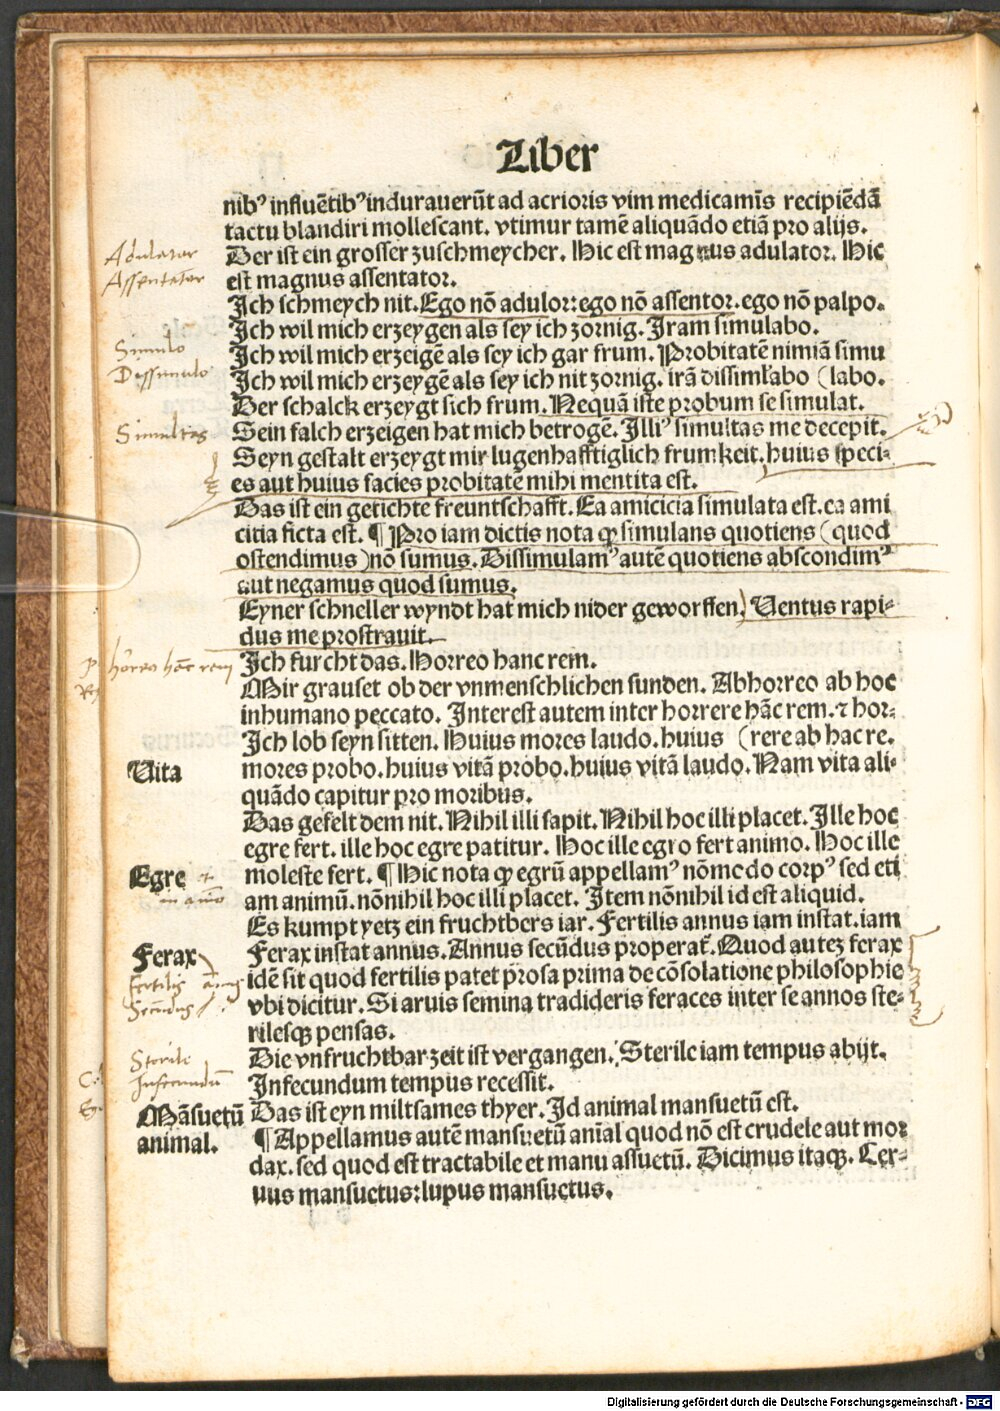 Liber
nibꝰ influētibꝰ indurauerūt ad acrioris vim medicamīs recipiēdā
tactu blandiri mollescant. vtimur tamē aliquādo etiā pro alijs.
Adulator
Der ist ein grosser zuschmeycher. Hic est magnus adulator. Hic
Assentator
est magnus assentator.
Ich schmeych nit. Ego nō adulor: ego nō assentor. ego nō palpo.
Ich wil mich erzeygen als sey ich zornig. Iram simulabo.
Simulo
Ich wil mich erzeigē als sey ich gar frum. Probitatē nimiā simu
Dissimulo
Ich wil mich erzeygē als sey ich nit zornig. irā dissimlabo (labo.
Der schalck erzeygt sich frum. Nequā iste probum se simulat.
Simultas
Sein falch erzeigen hat mich betrogē. Illiꝰ simultas me decepit.
Seyn gestalt erzeygt mir lugenhafftiglich frumkeit. huius speci-
es aut huius facies probitatē mihi mentita est.
Das ist ein getichte freuntschafft. Ea amicicia simulata est. ea ami
citia ficta est. ¶ Pro iam dictis nota ꝙ simulans quotiens (quod
ostendimus) nō sumus. Dissimulamꝰ autē quotiens abscondimꝰ
aut negamus quod sumus.
Eyner schneller wyndt hat mich nider geworffen. Uentus rapi-
dus me prostrauit.
horreo hāc rem
Ich furcht das. Horreo hanc rem.
Mir grauset ob der vnmenschlichen sunden. Abhorreo ab hoc
inhumano peccato. Interest autem inter horrere hāc rem. ⁊ hor-
Ich lob seyn sitten. Huius mores laudo. huius (rere ab hac re.
Uita
mores probo. huius vitā probo. huius vitā laudo. Nam vita ali-
quādo capitur pro moribus.
Das gefelt dem nit. Nihil illi sapit. Nihil hoc illi placet. Ille hoc
egre fert. ille hoc egre patitur. Hoc ille egro fert animo. Hoc ille
Egre
moleste fert. ¶ Hic nota ꝙ egrū appellamꝰ nōmodo corpꝰ sed eti
am animū. nōnihil hoc illi placet. Item nōnihil id est aliquid.
Es kumpt yetz ein fruchtbers iar. Fertilis annus iam instat. iam
Ferax
Ferax instat annus. Annus secūdus properat. Quod autez ferax
Fertilis
idē sit quod fertilis patet prosa prima de cōsolatione philosophie
Secūdus
vbi dicitur. Si aruis semina tradideris feraces inter se annos ste-
rilesqꝫ pensas.
Sterile
Die vnfruchtbar zeit ist vergangen. Sterile iam tempus abijt.
Infecundū
Infecundum tempus recessit.
Māsuetū
Das ist eyn miltsames thyer. Id animal mansuetū est.
animal.
¶ Appellamus autē mansuetū anīal quod nō est crudele aut mor
dax. sed quod est tractabile et manu assuetū. Dicimus itaqꝫ. Cer-
uus mansuetus: lupus mansuetus.
Digitalisierung gefördert durch die Deutsche Forschungsgemeinschaft - DFG